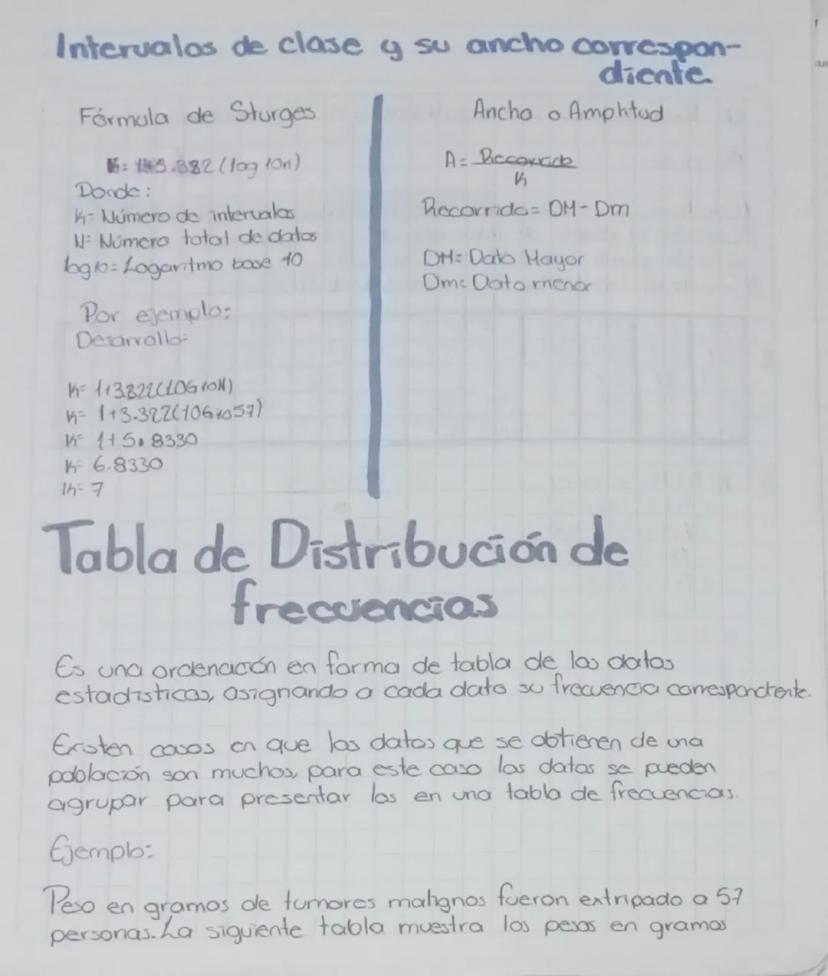 Intervalos de clase y su ancho correspon-
diente
Fórmula de Sturges
K= 1+3.322 (log 10n)
Donde:
K= Número de intervalos
N= Número total de datos
log10= Logaritmo base 10
Por ejemplo:
Desarrollo:
K= 1+3.322(LOG 10N)
K= 1+3.322(LOG 1057)
K= 1+5.8330
K= 6.8330
K= 7
Ancho o Amplitud
A= Recorrido
K
Recorrido= DM-Dm
DM= Dato Mayor
Dm= Dato menor
Tabla de Distribución de
frecuencias
Es una ordenación en forma de tabla de los datos
estadísticos, asignando a cada dato su frecuencia correspondiente.
Existen casos en que los datos que se obtienen de una
población son muchos, para este caso los datos se pueden
agrupar para presentar los en una tabla de frecuencias.
Ejemplo:
Peso en gramos de tumores malignos fueron extripado a 57
personas. La siguiente tabla muestra los pesos en gramos